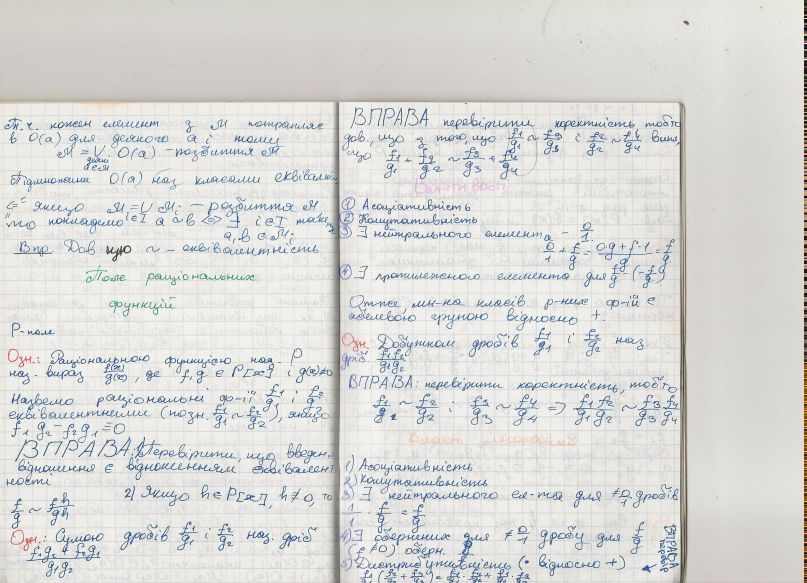 Т.ч. кожен елемент з M потрапляє
в O(a) для деякого a і тому
M = ∪ O(a) - розбиття M
a∈M
Підмножини O(a) наз. класами еквівал.
"⇐" Якщо M = ∪ Mi - розбиття M
i∈I
то покладемо a ~ b ⇔ ∃ i∈I
a, b ∈ Mi
Впр. Дов, що ~ - еквівалентність
Поле раціональних
функцій
P-поле
Озн.: Раціональною функцією над P
наз. вираз f(x)/g(x), де f, g ∈ P[x] і g(x)≠0
Назвемо раціональні ф-ії f1/g1 і f2/g2
еквівалентними (позн. f1/g1 ~ f2/g2), якщо
f1 g2 - f2 g1 = 0
ВПРАВА: Перевірити, що введене
відношення є відношенням еквівалент
ності
2) Якщо h ∈ P[x], h≠0, то
f/g ~ fh/gh
Озн.: Сумою дробів f1/g1 і f2/g2 наз. дріб
(f1g2 + f2g1)/(g1g2)
ВПРАВА перевірити коректність тобто
дов., що з того, що f1/g1 ~ f3/g3 і f2/g2 ~ f4/g4 вип.,
що f1/g1 + f2/g2 ~ f3/g3 + f4/g4
Властивості
① Асоціативність
② Комутативність
③ ∃ нейтрального елемента - 0/1
0/1 + f/g = (0·g + f·1)/g = f/g
④ ∃ протилежного елемента для f/g (-f/g)
Отже, мн-на класів р-них ф-ій є
абелевою групою відносно +.
Озн. Добутком дробів f1/g1 і f2/g2 наз.
дріб f1f2/g1g2
ВПРАВА: перевірити коректність, тобто
f1/g2 ~ f2/g2 і f3/g3 ~ f4/g4 ⇒ f1f2/g1g2 ~ f3f4/g3g4
Власт.
1) Асоціативність
2) Комутативність
3) ∃ нейтрального ел-та для ≠ 0/1 дробів
1/1 · f/g = f/g
4) ∃ обернених для ≠ 0/1 дробу для f/g
(f≠0) оберн.
5) Дистрибутивність (· відносно +)
ВПРАВА